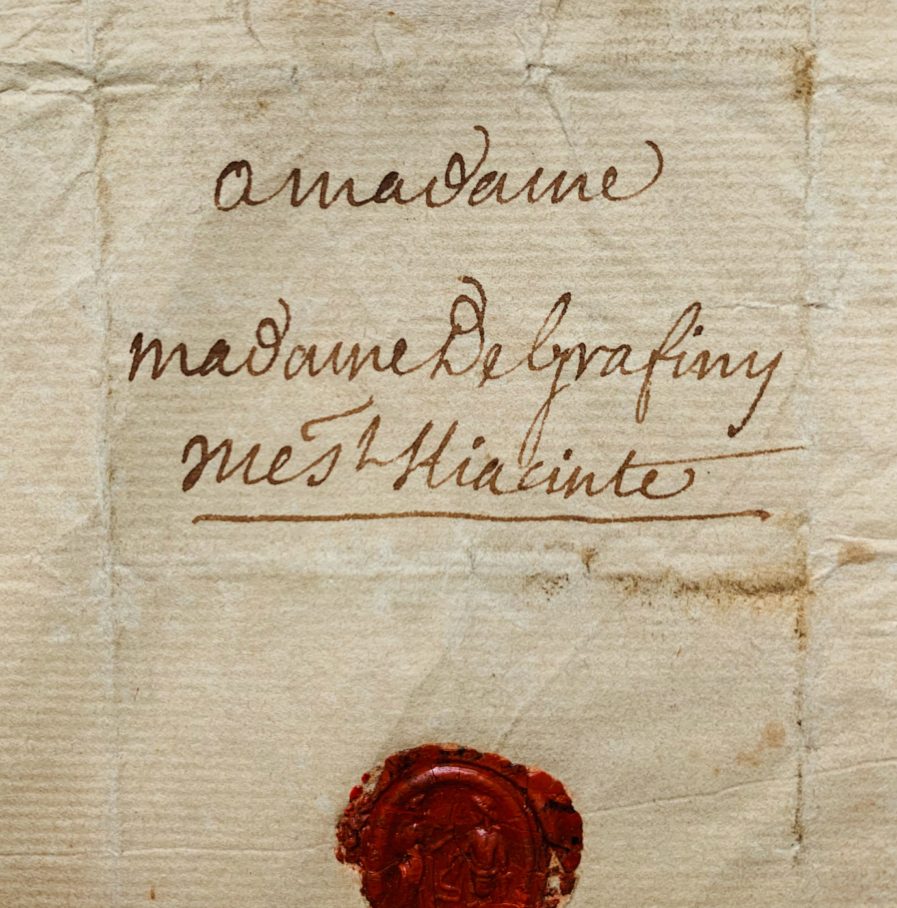 a madame
madame De Grafiny
rue St Hiacinte